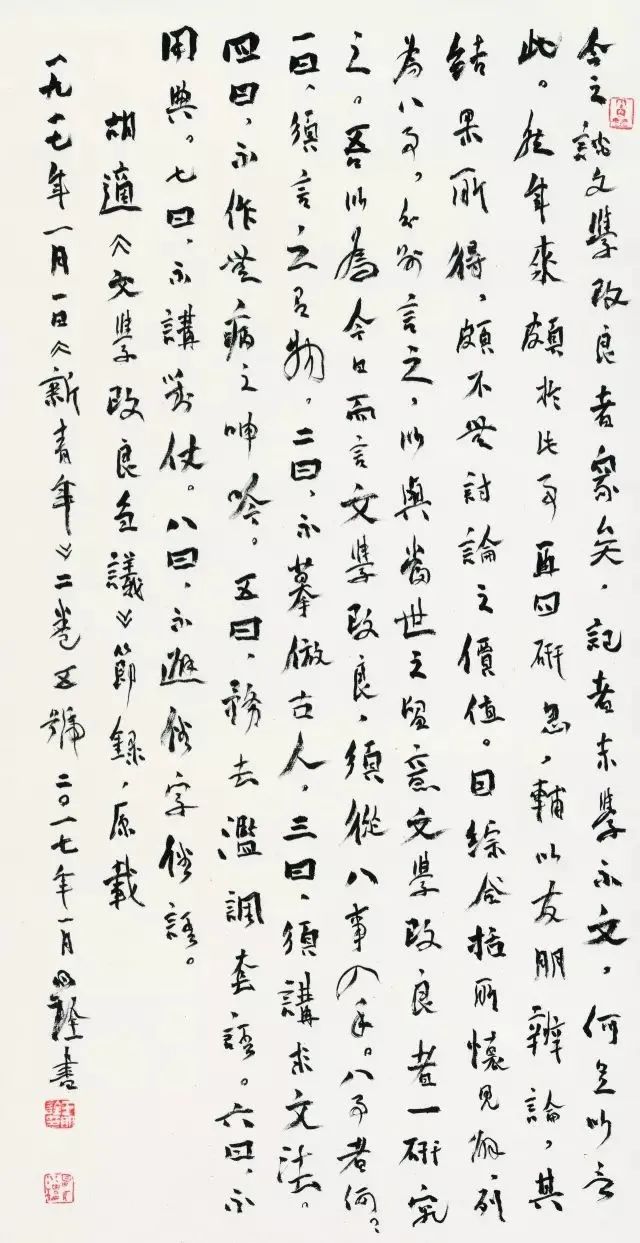 今之談文學改良者眾矣，記者未學不文，何足以言
此。然年來頗於此事再四研思，輔以友朋辯論，其
結果所得，頗不無討論之價值。因綜合括所懷見解，列
為八事，分別言之，以與當世之留意文學改良者一研究
之。吾以為今日而言文學改良，須從八事入手。八事者何？
一曰，須言之有物。二曰，不摹倣古人，三曰，須講求文法。
四曰，不作無病之呻吟。五曰，務去濫調套語。六曰，不
用典。七曰，不講對仗。八曰，不避俗字俗語。
胡適《文學改良芻議》節錄，原載
一九一七年一月一日《新青年》二卷五號 二〇一七年一月 書